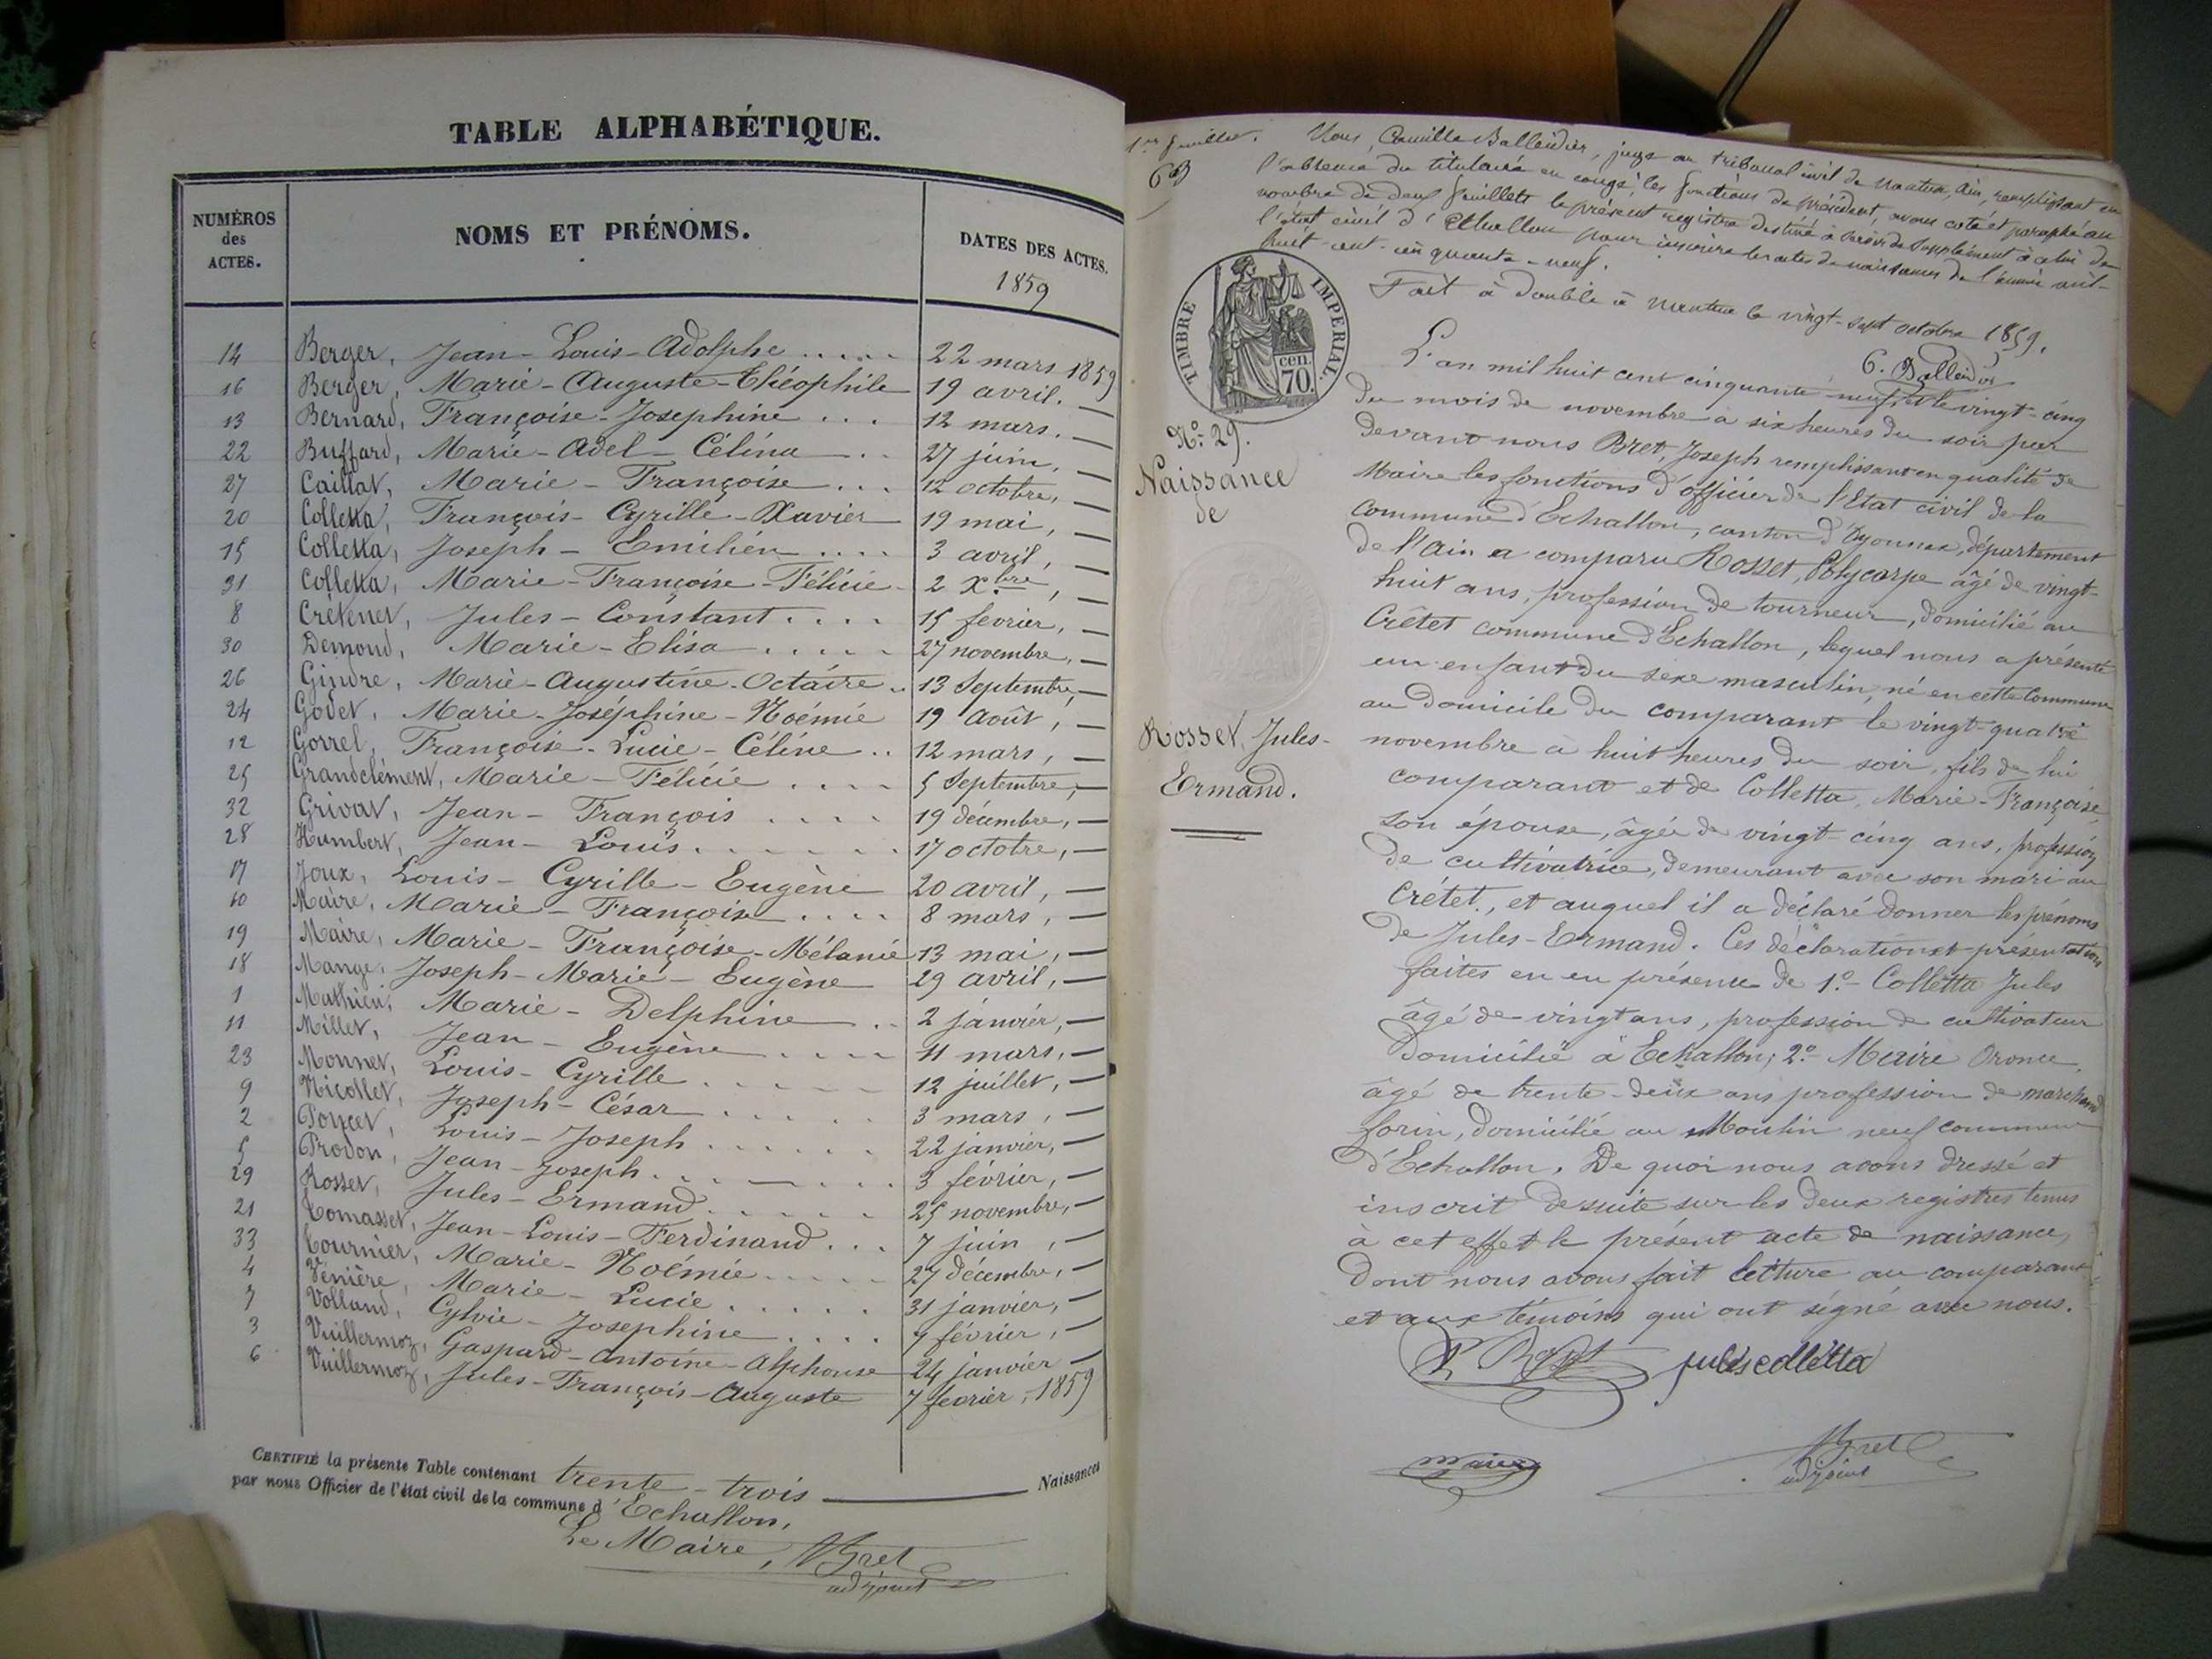 TABLE ALPHABÉTIQUE.
NUMÉROS des ACTES.
NOMS ET PRÉNOMS.
DATES DES ACTES.
1859
14 Berger, Jean-Louis-Adolphe ..... 22 mars 1859
16 Berger, Marie-Auguste-Théophile 19 avril. —
13 Bernard, Françoise-Josephine ... 12 mars. —
22 Buffard, Marie-Adel-Célina .. 27 juin, —
27 Caillat, Marie-Françoise ... 12 octobre, —
20 Colletta, François-Cyrille-Xavier 19 mai, —
15 Colletta, Joseph-Emilien .... 3 avril, —
31 Colletta, Marie-Françoise-Félicie 2 Xbre, —
8 Crétenet, Jules-Constant .... 15 fevrier, —
30 Demond, Marie-Elisa ..... 27 novembre, —
26 Gindre, Marie-Augustine-Octaire .. 13 Septembre, —
24 Godet, Marie-Joséphine-Noémie 19 Août, —
12 Gorrel, Françoise-Lucie-Céline .. 12 mars, —
25 Grandclément, Marie-Félicie .... 5 Septembre, —
32 Grivat, Jean-François .... 19 décembre, —
28 Humbert, Jean-Louis ...... 17 octobre, —
17 Joux, Louis-Cyrille-Eugène 20 avril, —
10 Maire, Marie-Françoise .... 8 mars, —
19 Maire, Marie-Françoise-Mélanie 13 mai, —
18 Mange, Joseph-Marie-Eugène 29 avril, —
1 Mathieu, Marie-Delphine .. 2 janvier, —
11 Millet, Jean-Eugène .... 11 mars, —
23 Monnet, Louis-Cyrille ..... 12 juillet, —
9 Nicollet, Joseph-César ..... 3 mars, —
2 Poncet, Louis-Joseph ...... 22 janvier, —
5 Prodon, Jean-Joseph ...... 3 février, —
29 Rosset, Jules-Ermand ..... 25 novembre, —
21 Tomasset, Jean-Louis-Ferdinand ... 7 juin, —
33 Tournier, Marie-Noémie .... 27 décembre, —
4 Vénière, Marie-Lucie ..... 31 janvier, —
7 Volland, Cylvie-Josephine .... 7 février, —
3 Vuillermoz, Gaspard-Antoine-Alphonse 24 janvier —
6 Vuillermoz, Jules-François-Auguste 7 fevrier, 1859
CERTIFIÉ la présente Table contenant trente-trois — Naissances
par nous Officier de l'état civil de la commune d'Echallon,
Le Maire, Bret
adjoint
1er feuillet.
Nous, Camille Balleidier, juge au tribunal civil de Nantua, Ain, remplissant en
l'absence du titulaire en congé, les fonctions de président, avons coté et paraphé au
nombre de deux feuillets le présent registre destiné à servir de supplément à celui de
l'état civil d'Echallon pour inscrire les actes de naissances de l'année mil-
huit-cent-cinquante-neuf.
Fait à double à Nantua le vingt-sept octobre 1859.
C. Balleidier
TIMBRE IMPERIAL.
70 cen.
N° 29.
Naissance
de
Rosset, Jules-
Ermand.
L'an mil huit cent cinquante-neuf, et le vingt-cinq
du mois de novembre à six heures du soir par
devant nous Bret, Joseph remplissant en qualité de
Maire les fonctions d'officier de l'Etat civil de la
commune d'Echallon, canton d'Oyonnax, département
de l'Ain a comparu Rosset, Polycarpe âgé de vingt-
huit ans, profession de tourneur, domicilié au
Crêtet commune d'Echallon, lequel nous a présenté
un enfant du sexe masculin, né en cette Commune
au domicile du comparant le vingt-quatre
novembre à huit heures du soir, fils de lui
comparant et de Colletta, Marie-Françoise,
son épouse, âgée de vingt-cinq ans, profession
de cultivatrice, demeurant avec son mari au
Crétet, et auquel il a déclaré donner les prénoms
de Jules-Ermand. Ces déclaration et présentation
faites en en présence de 1° Colletta Jules
âgé de vingt ans, profession de cultivateur
domicilié à Echallon; 2° Maire Oronce,
âgé de trente-deux ans profession de marchand
forin, domicilié au Moulin neuf commune
d'Echallon. De quoi nous avons dressé et
inscrit de suite sur les deux registres tenus
à cet effet le présent acte de naissance,
dont nous avons fait lecture au comparant
et aux témoins qui ont signé avec nous.
P. Rosset jules colletta
maire
Bret
adjoint